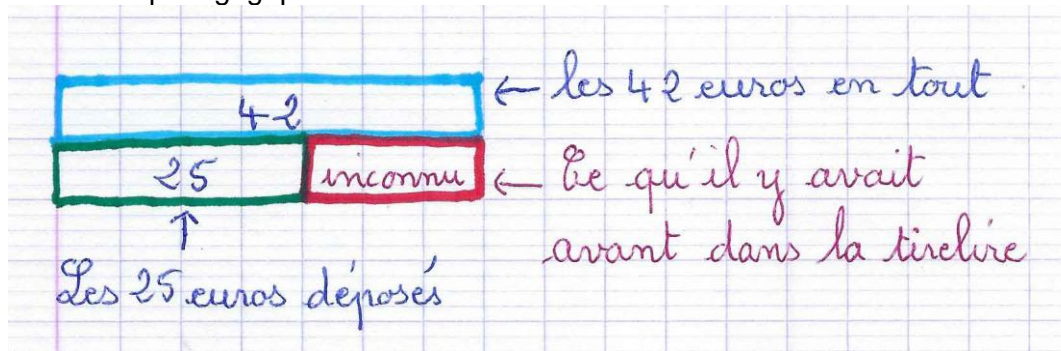 42
← les 42 euros en tout
25
inconnu
← Ce qu'il y avait
avant dans la tirelire
↑
Les 25 euros déposés